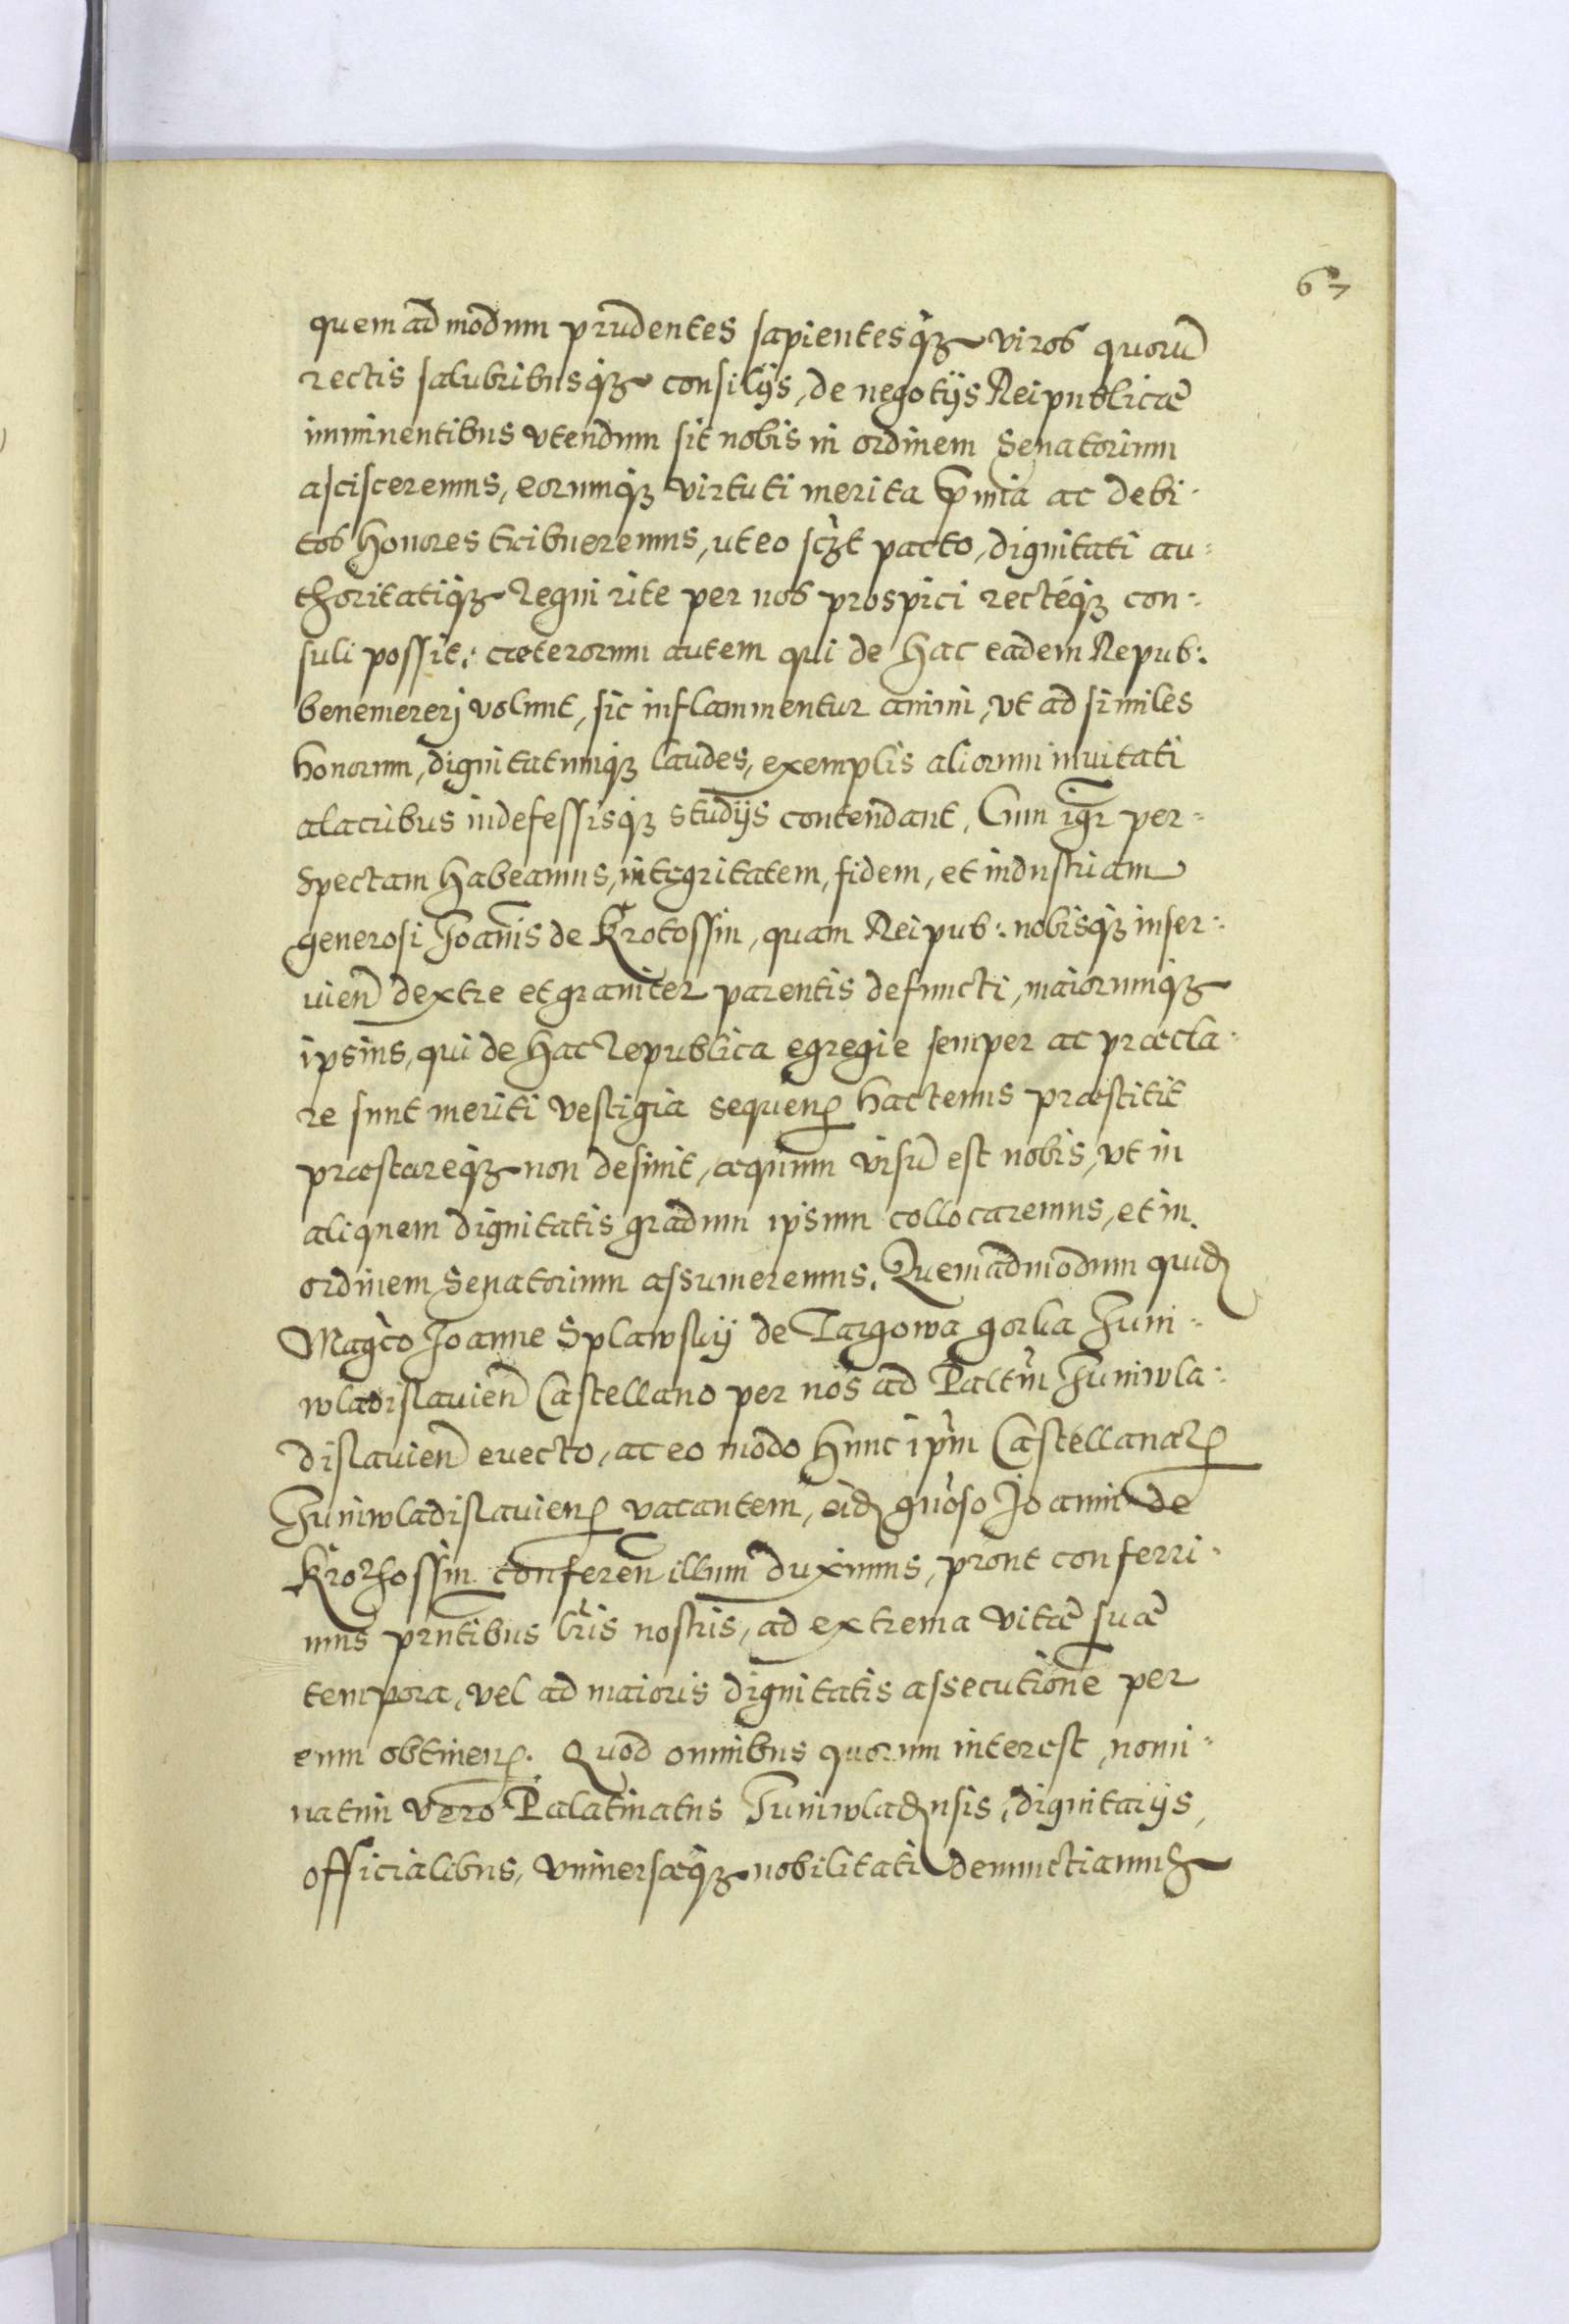 67
quemadmodum prudentes sapientesq́ꝫ viros quorū
rectis salubribusq́ꝫ consilijs, de negotijs Reipublicæ
imminentibus vtendum sit nobis in ordinem Senatorium
ascisceremus, eorumq́ꝫ virtuti merita p̄mia ac debi-
tos honores tribueremus, ut eo scꝫt pacto, dignitati au-
thoritatiq́ꝫ Regni rite per nos prospici rectéq́ꝫ con-
suli possit: cæterorum autem qui de hac eadem Repub:
benemererj volunt, sic inflammentur animi, vt ad similes
honorum, dignitatumq́ꝫ laudes, exemplis aliorum inuitati
alacribus indefessisq́ꝫ studijs contendant, Cum igr̄ per-
spectam habeamus, integritatem, fidem, et industriam
generosi Joan̄is de Krotossin, quam Reipub: nobisq́ꝫ inser-
uien̄ dextre et grauiter parentis defuncti, maiorumq́ꝫ
ipsius, qui de hac republica egregie semper ac præcla-
re sunt meriti vestigia sequenꝭ hactenus præstitit
præstareq́ꝫ non desinit, æquum visū est nobis, vt in
aliquem dignitatis gradum ipsum collocaremus, et in
ordinem Senatorium assumeremus. Quemadmodum quidē
Magc̄o Joanne Splawskij de Targowa gorka Juni-
wladislauien̄ Castellano per nos ad Paltm̄ Juniwla-
dislauien̄ euecto, ac eo modo hunc ip̄m Castellanatꝭ
Juniwladislauienꝭ vacantem, eidē gn̄oso Joanni de
Krothossin conferen̄ illum duximus, prout conferri-
mus prn̄tibus lr̄is nostris, ad extrema vitæ suæ
tempora, vel ad maioris dignitatis assecutionē per
eum obtinenꝭ. Quod omnibus quorum interest, nomi-
natim vero Palatinatus Juniwladensis, dignitarijs,
officialibus, vniuersæq́ꝫ nobilitati denunctiamuꝫ